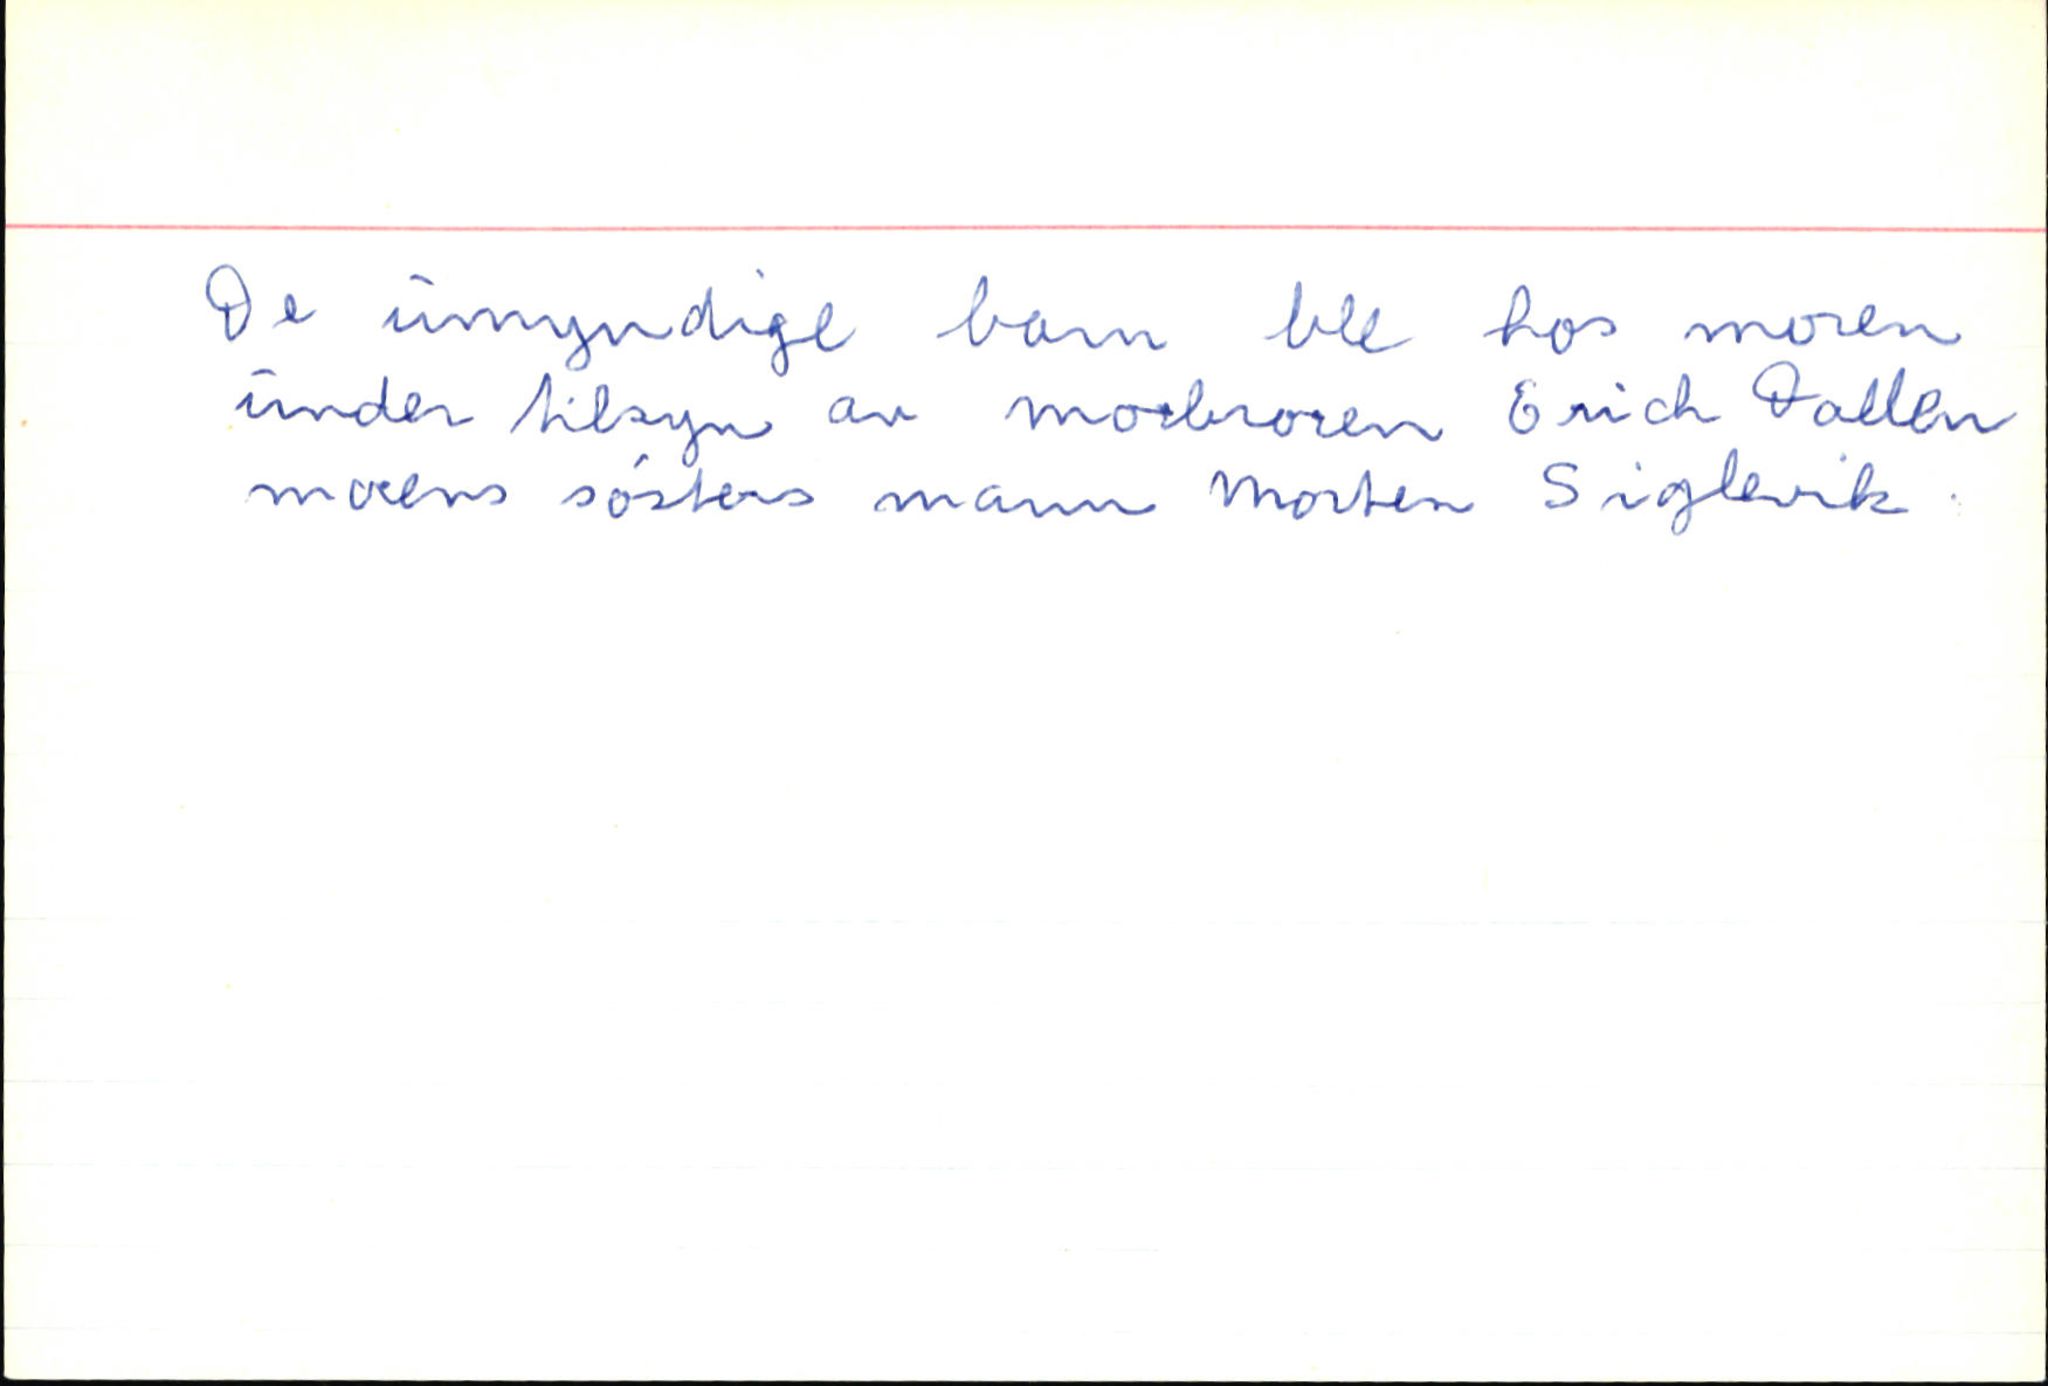 De umyndige barn ble hos moren
under tilsyn av morbroren Erich Dallen
morens søsters mann Morten Siglevik.